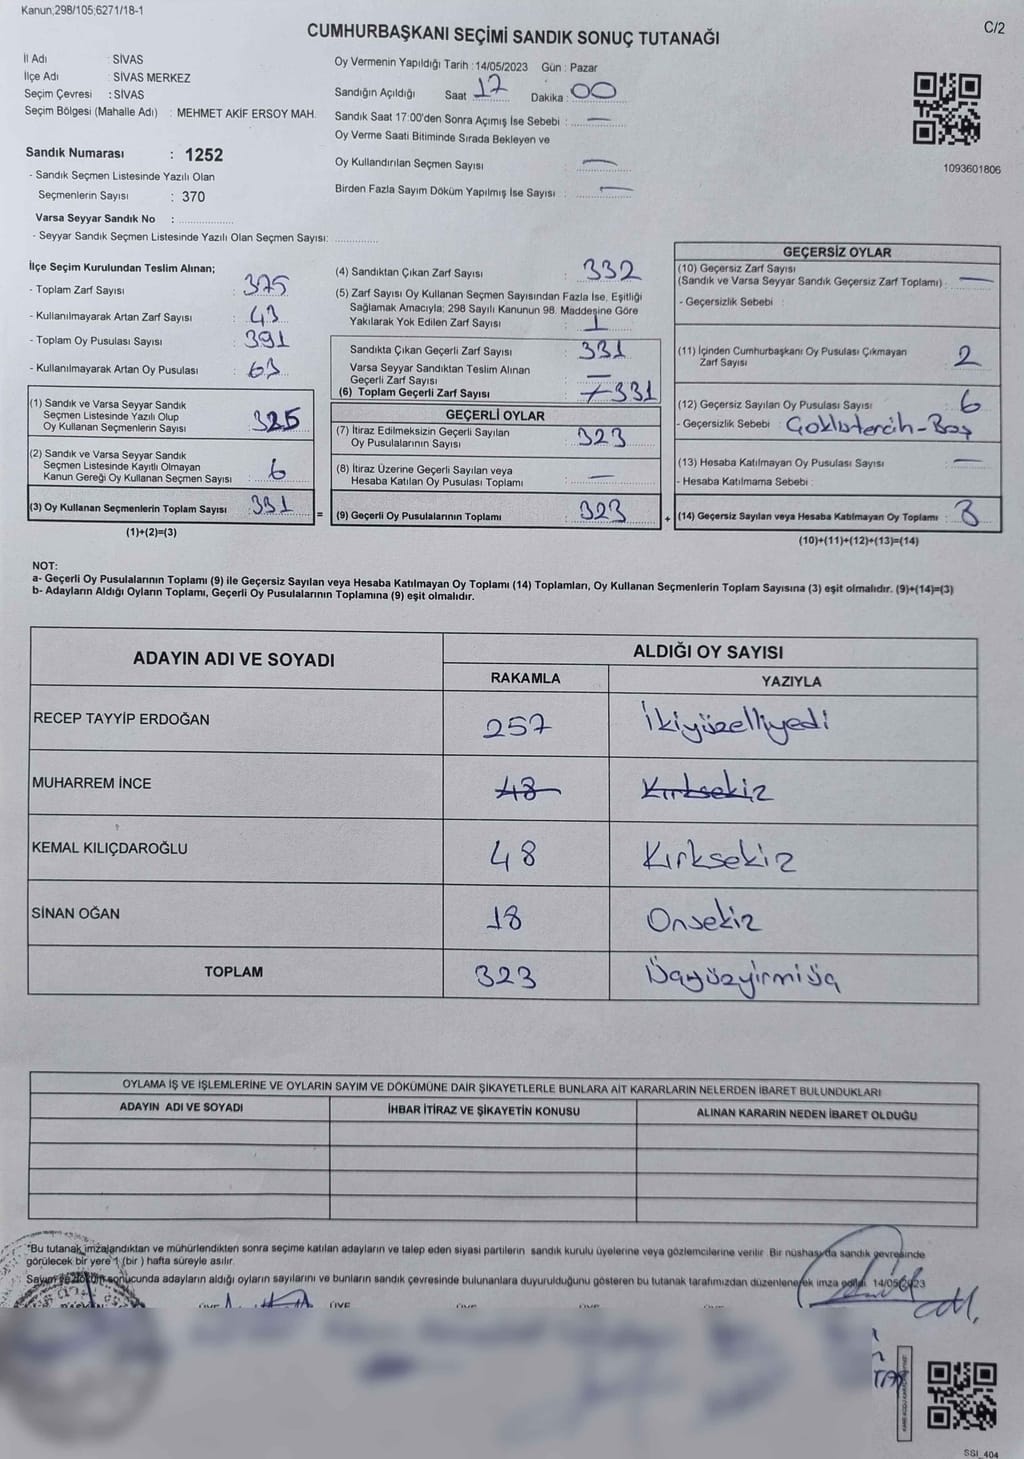 Kanun;298/105;6271/18-1
C/2
CUMHURBAŞKANI SEÇİMİ SANDIK SONUÇ TUTANAĞI
İl Adı : SİVAS
İlçe Adı : SİVAS MERKEZ
Seçim Çevresi : SİVAS
Seçim Bölgesi (Mahalle Adı) : MEHMET AKİF ERSOY MAH.
Sandık Numarası : 1252
- Sandık Seçmen Listesinde Yazılı Olan
Seçmenlerin Sayısı : 370
Varsa Seyyar Sandık No :
- Seyyar Sandık Seçmen Listesinde Yazılı Olan Seçmen Sayısı:
Oy Vermenin Yapıldığı Tarih : 14/05/2023 Gün : Pazar
Sandığın Açıldığı Saat 17 Dakika : 00
Sandık Saat 17:00'den Sonra Açımış İse Sebebi : —
Oy Verme Saati Bitiminde Sırada Bekleyen ve
Oy Kullandırılan Seçmen Sayısı : —
Birden Fazla Sayım Döküm Yapılmış İse Sayısı : —
1093601806
İlçe Seçim Kurulundan Teslim Alınan;
- Toplam Zarf Sayısı : 375
- Kullanılmayarak Artan Zarf Sayısı : 43
- Toplam Oy Pusulası Sayısı : 391
- Kullanılmayarak Artan Oy Pusulası : 63
(1) Sandık ve Varsa Seyyar Sandık
Seçmen Listesinde Yazılı Olup
Oy Kullanan Seçmenlerin Sayısı : 325
(2) Sandık ve Varsa Seyyar Sandık
Seçmen Listesinde Kayıtlı Olmayan
Kanun Gereği Oy Kullanan Seçmen Sayısı : 6
(3) Oy Kullanan Seçmenlerin Toplam Sayısı : 331
(1)+(2)=(3)
(4) Sandıktan Çıkan Zarf Sayısı : 332
(5) Zarf Sayısı Oy Kullanan Seçmen Sayısından Fazla İse, Eşitliği
Sağlamak Amacıyla; 298 Sayılı Kanunun 98. Maddesine Göre
Yakılarak Yok Edilen Zarf Sayısı : 1
Sandıkta Çıkan Geçerli Zarf Sayısı : 331
Varsa Seyyar Sandıktan Teslim Alınan
Geçerli Zarf Sayısı : —
(6) Toplam Geçerli Zarf Sayısı : 331
GEÇERLİ OYLAR
(7) İtiraz Edilmeksizin Geçerli Sayılan
Oy Pusulalarının Sayısı : 323
(8) İtiraz Üzerine Geçerli Sayılan veya
Hesaba Katılan Oy Pusulası Toplamı : —
= (9) Geçerli Oy Pusulalarının Toplamı : 323
GEÇERSİZ OYLAR
(10) Geçersiz Zarf Sayısı
(Sandık ve Varsa Seyyar Sandık Geçersiz Zarf Toplamı) : —
- Geçersizlik Sebebi :
(11) İçinden Cumhurbaşkanı Oy Pusulası Çıkmayan
Zarf Sayısı : 2
(12) Geçersiz Sayılan Oy Pusulası Sayısı : 6
- Geçersizlik Sebebi : Çoklutercih-Boş
(13) Hesaba Katılmayan Oy Pusulası Sayısı : —
- Hesaba Katılmama Sebebi :
+ (14) Geçersiz Sayılan veya Hesaba Katılmayan Oy Toplamı : 8
(10)+(11)+(12)+(13)=(14)
NOT:
a- Geçerli Oy Pusulalarının Toplamı (9) ile Geçersiz Sayılan veya Hesaba Katılmayan Oy Toplamı (14) Toplamları, Oy Kullanan Seçmenlerin Toplam Sayısına (3) eşit olmalıdır. (9)+(14)=(3)
b- Adayların Aldığı Oyların Toplamı, Geçerli Oy Pusulalarının Toplamına (9) eşit olmalıdır.
ADAYIN ADI VE SOYADI ALDIĞI OY SAYISI
RAKAMLA YAZIYLA
RECEP TAYYİP ERDOĞAN 257 İkiyüzelliyedi
MUHARREM İNCE 48 Kırksekiz
KEMAL KILIÇDAROĞLU 48 Kırksekiz
SİNAN OĞAN 18 Onsekiz
TOPLAM 323 Üçyüzyirmiüç
OYLAMA İŞ VE İŞLEMLERİNE VE OYLARIN SAYIM VE DÖKÜMÜNE DAİR ŞİKAYETLERLE BUNLARA AİT KARARLARIN NELERDEN İBARET BULUNDUKLARI
ADAYIN ADI VE SOYADI İHBAR İTİRAZ VE ŞİKAYETİN KONUSU ALINAN KARARIN NEDEN İBARET OLDUĞU
*Bu tutanak imzalandıktan ve mühürlendikten sonra seçime katılan adayların ve talep eden siyasi partilerin sandık kurulu üyelerine veya gözlemcilerine verilir. Bir nüshası da sandık çevresinde
görülecek bir yere 1 (bir ) hafta süreyle asılır.
Sayım ve döküm sonucunda adayların aldığı oyların sayılarını ve bunların sandık çevresinde bulunanlara duyurulduğunu gösteren bu tutanak tarafımızdan düzenlenerek imza edildi. 14/05/2023
ÜYE ÜYE ÜYE ÜYE ÜYE
SSI_404